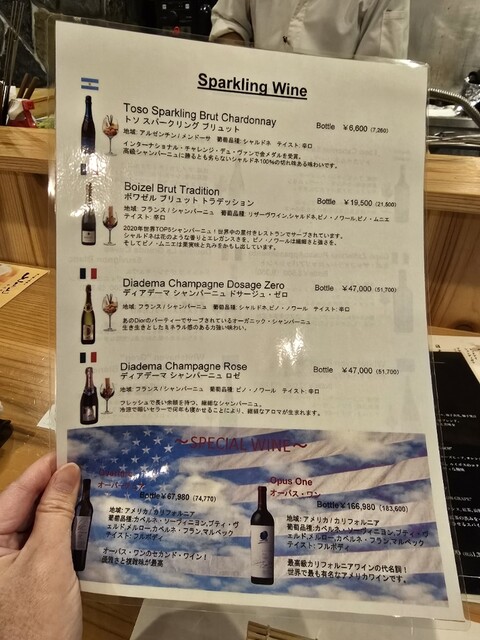 Sparkling Wine
Toso Sparkling Brut Chardonnay
トソ スパークリング ブリュット
Bottle ￥6,600 (7,260)
地域: アルゼンチン / メンドーサ 葡萄品種: シャルドネ テイスト: 辛口
インターナショナル・チャレンジ・デュ・ヴァンで金メダルを受賞。
高級シャンパーニュに勝るとも劣らないシャルドネ100%の切れ味ある味わいです。
Boizel Brut Tradition
ボワゼル ブリュット トラデッション
Bottle ￥19,500 (21,500)
地域: フランス / シャンパーニュ 葡萄品種: リザーヴワイン,シャルドネ,ピノ・ノワール,ピノ・ムニエ
テイスト: 辛口
2020年世界TOP5シャンパーニュ！世界中の星付きレストランでサーブされています。
シャルドネは花のような香りとエレガンスさを、ピノ・ノワールは繊細さと強さを、
そしてピノ・ムニエは果実味と丸みをかもし出しています。
Diadema Champagne Dosage Zero
ディアデーマ シャンパーニュ ドサージュ・ゼロ
Bottle ￥47,000 (51,700)
地域: フランス / シャンパーニュ 葡萄品種: シャルドネ,ピノ・ノワール テイスト: 辛口
あのDiorのパーティーでサーブされているオーガニック・シャンパーニュ
生き生きとしたミネラル感のある力強い味わい。
Diadema Champagne Rose
ディアデーマ シャンパーニュ ロゼ
Bottle ￥47,000 (51,700)
地域: フランス / シャンパーニュ 葡萄品種: ピノ・ノワール テイスト: 辛口
フレッシュで長い余韻を持つ、繊細なシャンパーニュ。
冷涼で暗いセラーで何年も寝かせることにより、複雑なアロマが生まれます。
～SPECIAL WINE～
Bottle￥67,980 (74,770)
地域: アメリカ / カリフォルニア
葡萄品種: カベルネ・ソーヴィニヨン,プティ・ヴ
ェルドメルロー,カベルネ・フラン,マルベック
テイスト: フルボディ
オーパス・ワンのセカンド・ワイン！
複雑味が最高
Opus One
オーパス・ワン
Bottle￥166,980 (183,600)
地域: アメリカ / カリフォルニア
葡萄品種: カベルネ・ソーヴィニヨン,プティ・ヴ
ェルド,メルロー,カベルネ・フラン,マルベック
テイスト: フルボディ
最高級カリフォルニアワインの代名詞！
世界で最も有名なアメリカワインです。